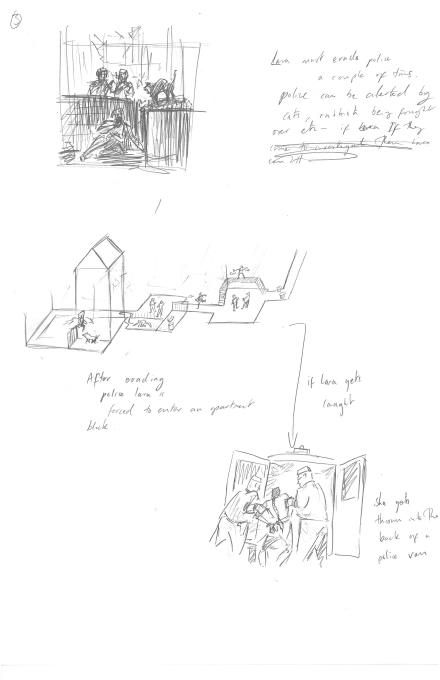 Lara must evade police
a couple of times.
police can be alerted by
cats, rubbish being
over etc - if If they
After evading
police Lara is
forced to enter an apartment
block
if Lara gets
caught
She gets
thrown into the
back of a
police van